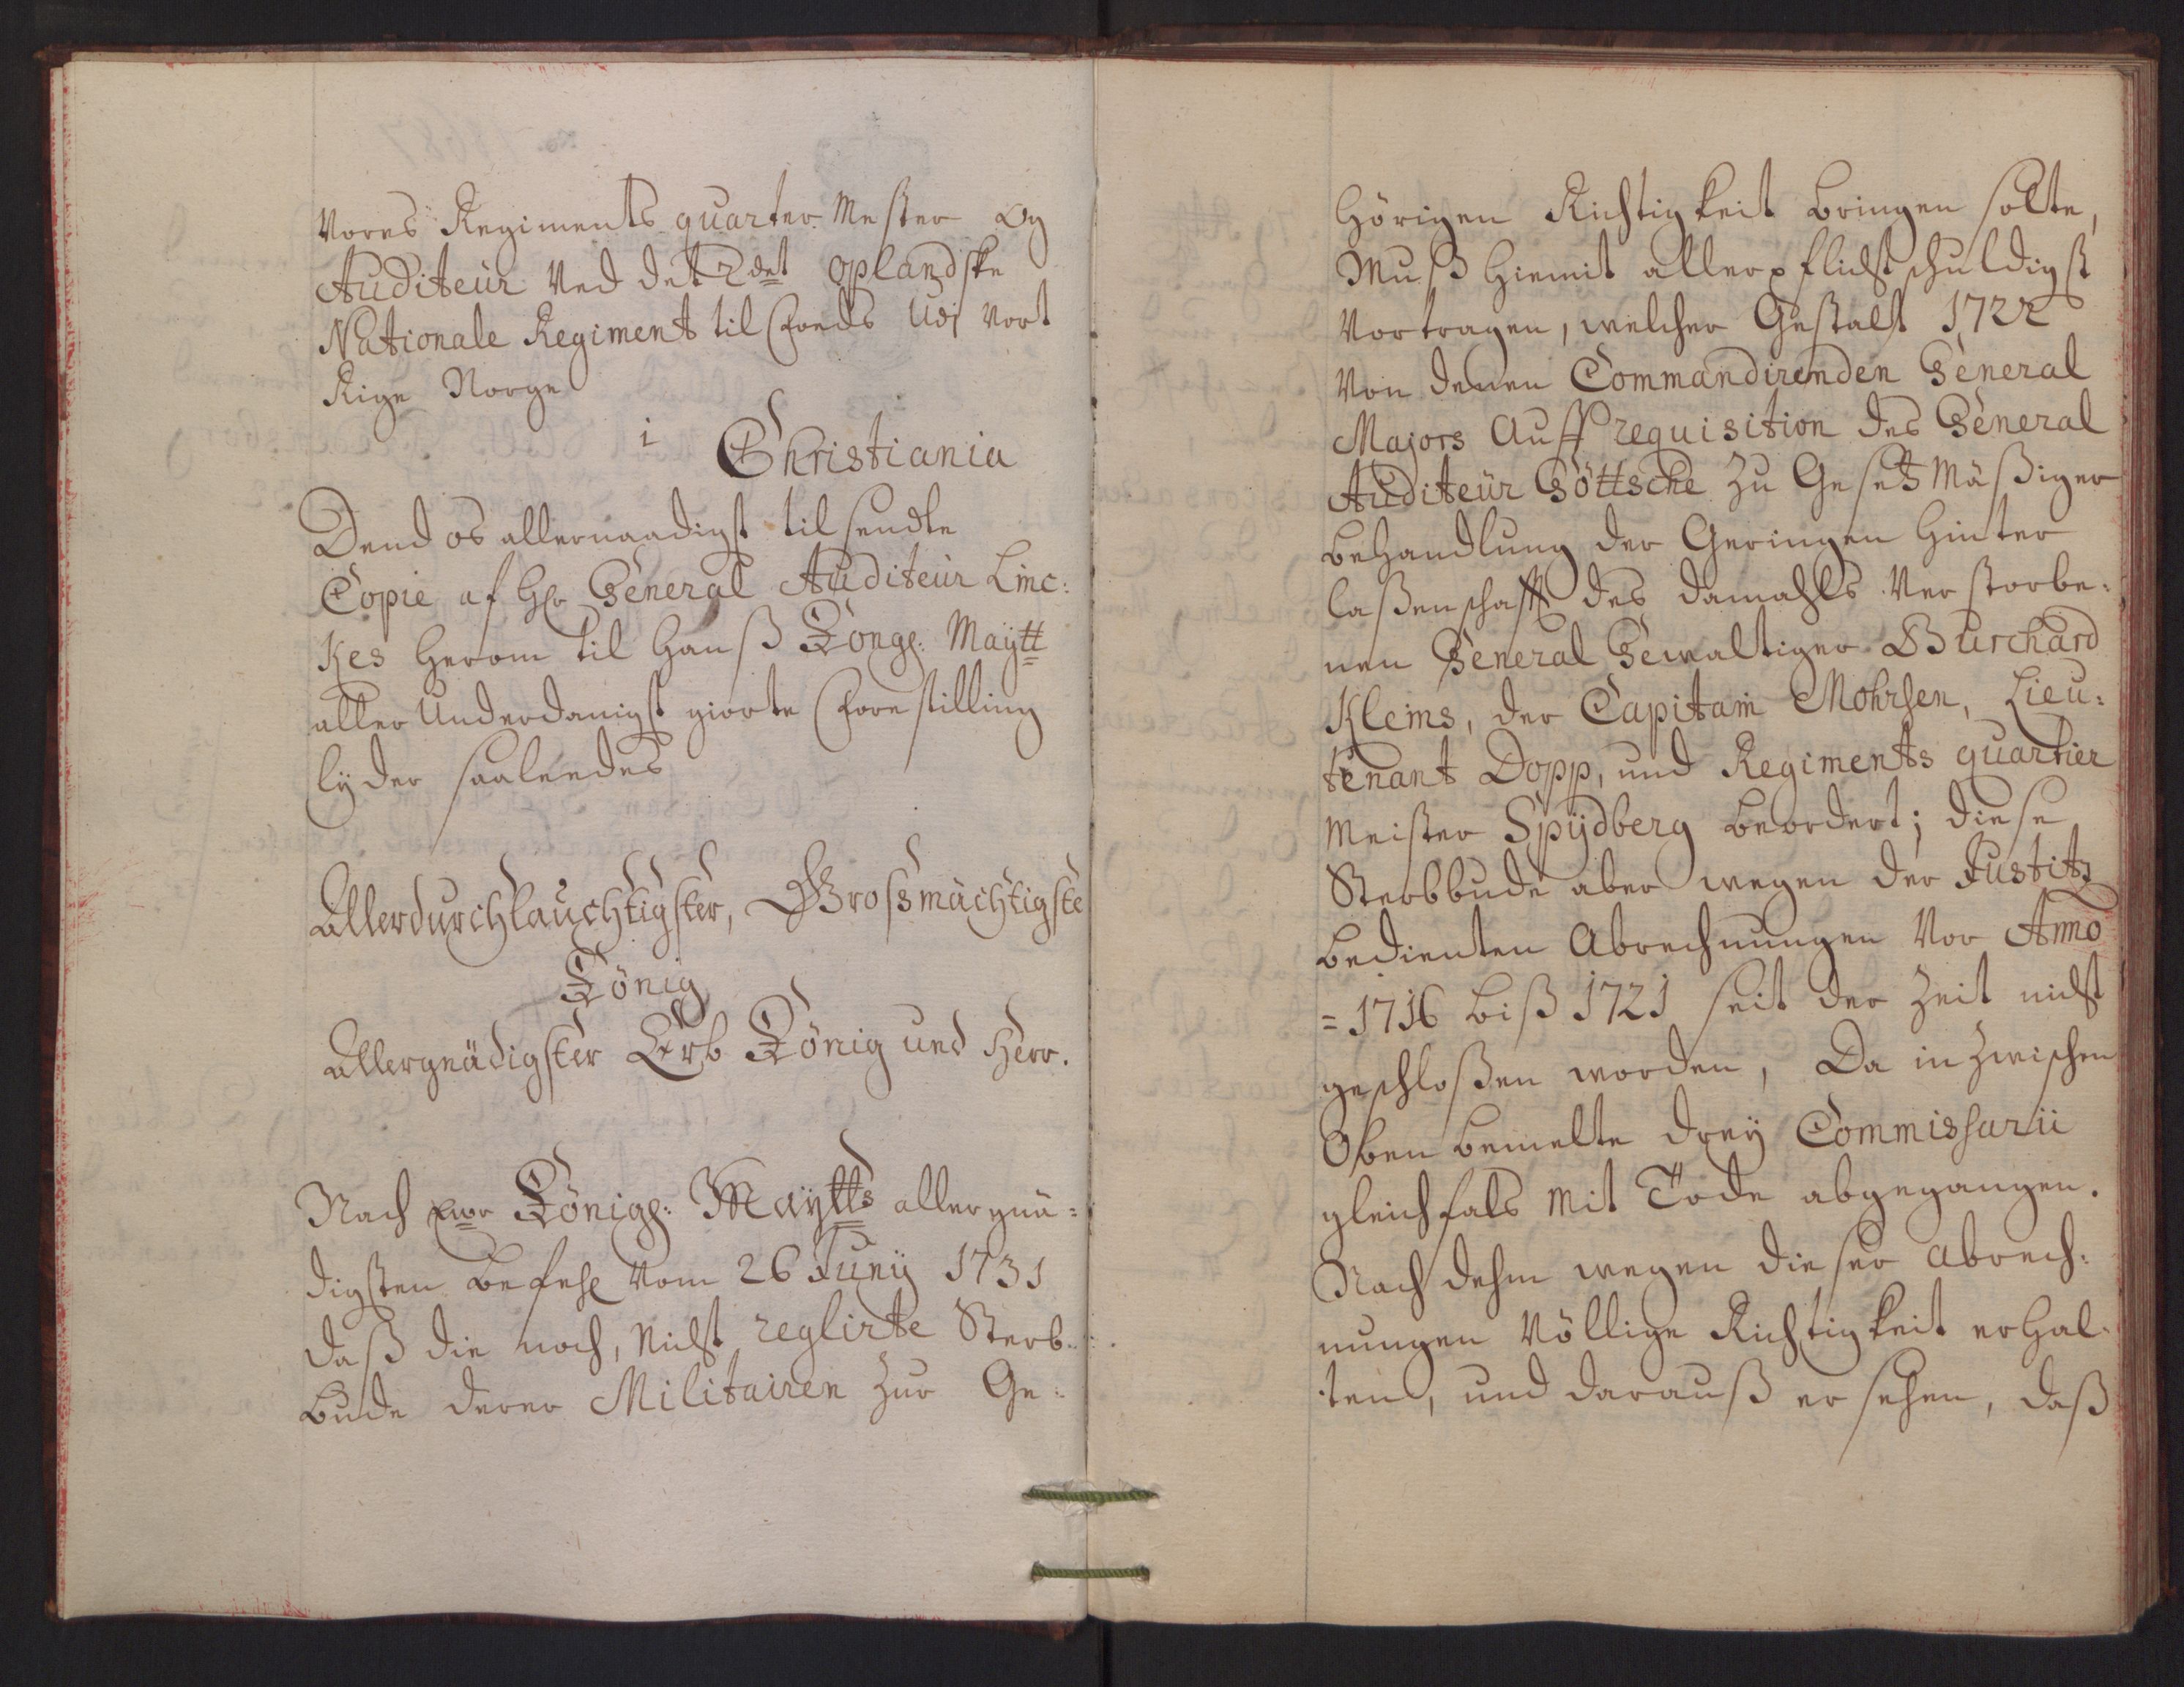 Vores Regiments quarter Mester Og
Auditeur Ved det 2det Oplandske
Nationale Regiment til Foeds Udi Vort
Rige Norge
i Christiania
Dend os allernaadigst tilsendte
Copie af Hr General Auditeur Linc:
Kes herom til Hanß Kongl: Maytt
aller Underdanigst giorte Forestilling
lyder saaleedes
Allerdurchlauchtigster, Grossmächtigste
König
Allergnädigster Erb König und Herr.
Nach Ewr Königl: Maytts allergnä=
digsten Befehl Vom 26 Junij 1731
daß die noch, Nicht reglirte Sterb=
bude derer Militairen Zur Ge=
hörigen Richtigkeit bringen solte,
Muß hiemit allerpflichtschuldigst
Vortragen, welcher Gestalt 1722
Von denen Commandirenden General
Majors Auff requisition des General
Auditeur Göttsche zu Gesetz Mäßiger
behandlung der Geringen hinter
laßenschafft des damahls Verstorbe=
nen General Gewaltiger Burchard
Klems, der Capitain Mohrsen, Lieu=
tenant Dopp, und Regiments quartier
Meister Spÿdberg beordert; diese
Sterbbude aber wegen der Justitz
bedienten Abrechnungen Vor Anno
=1716 biß 1721 seit der Zeit nicht
geschloßen worden, Da inzwischen
Oben bemelte dreÿ Commissarii
gleichfals Mit Tode abgegangen.
Nach dehm wegen dieser Abrech=
nungen Völlige Richtigkeit erhal=
ten, und darauß ersehen, daß